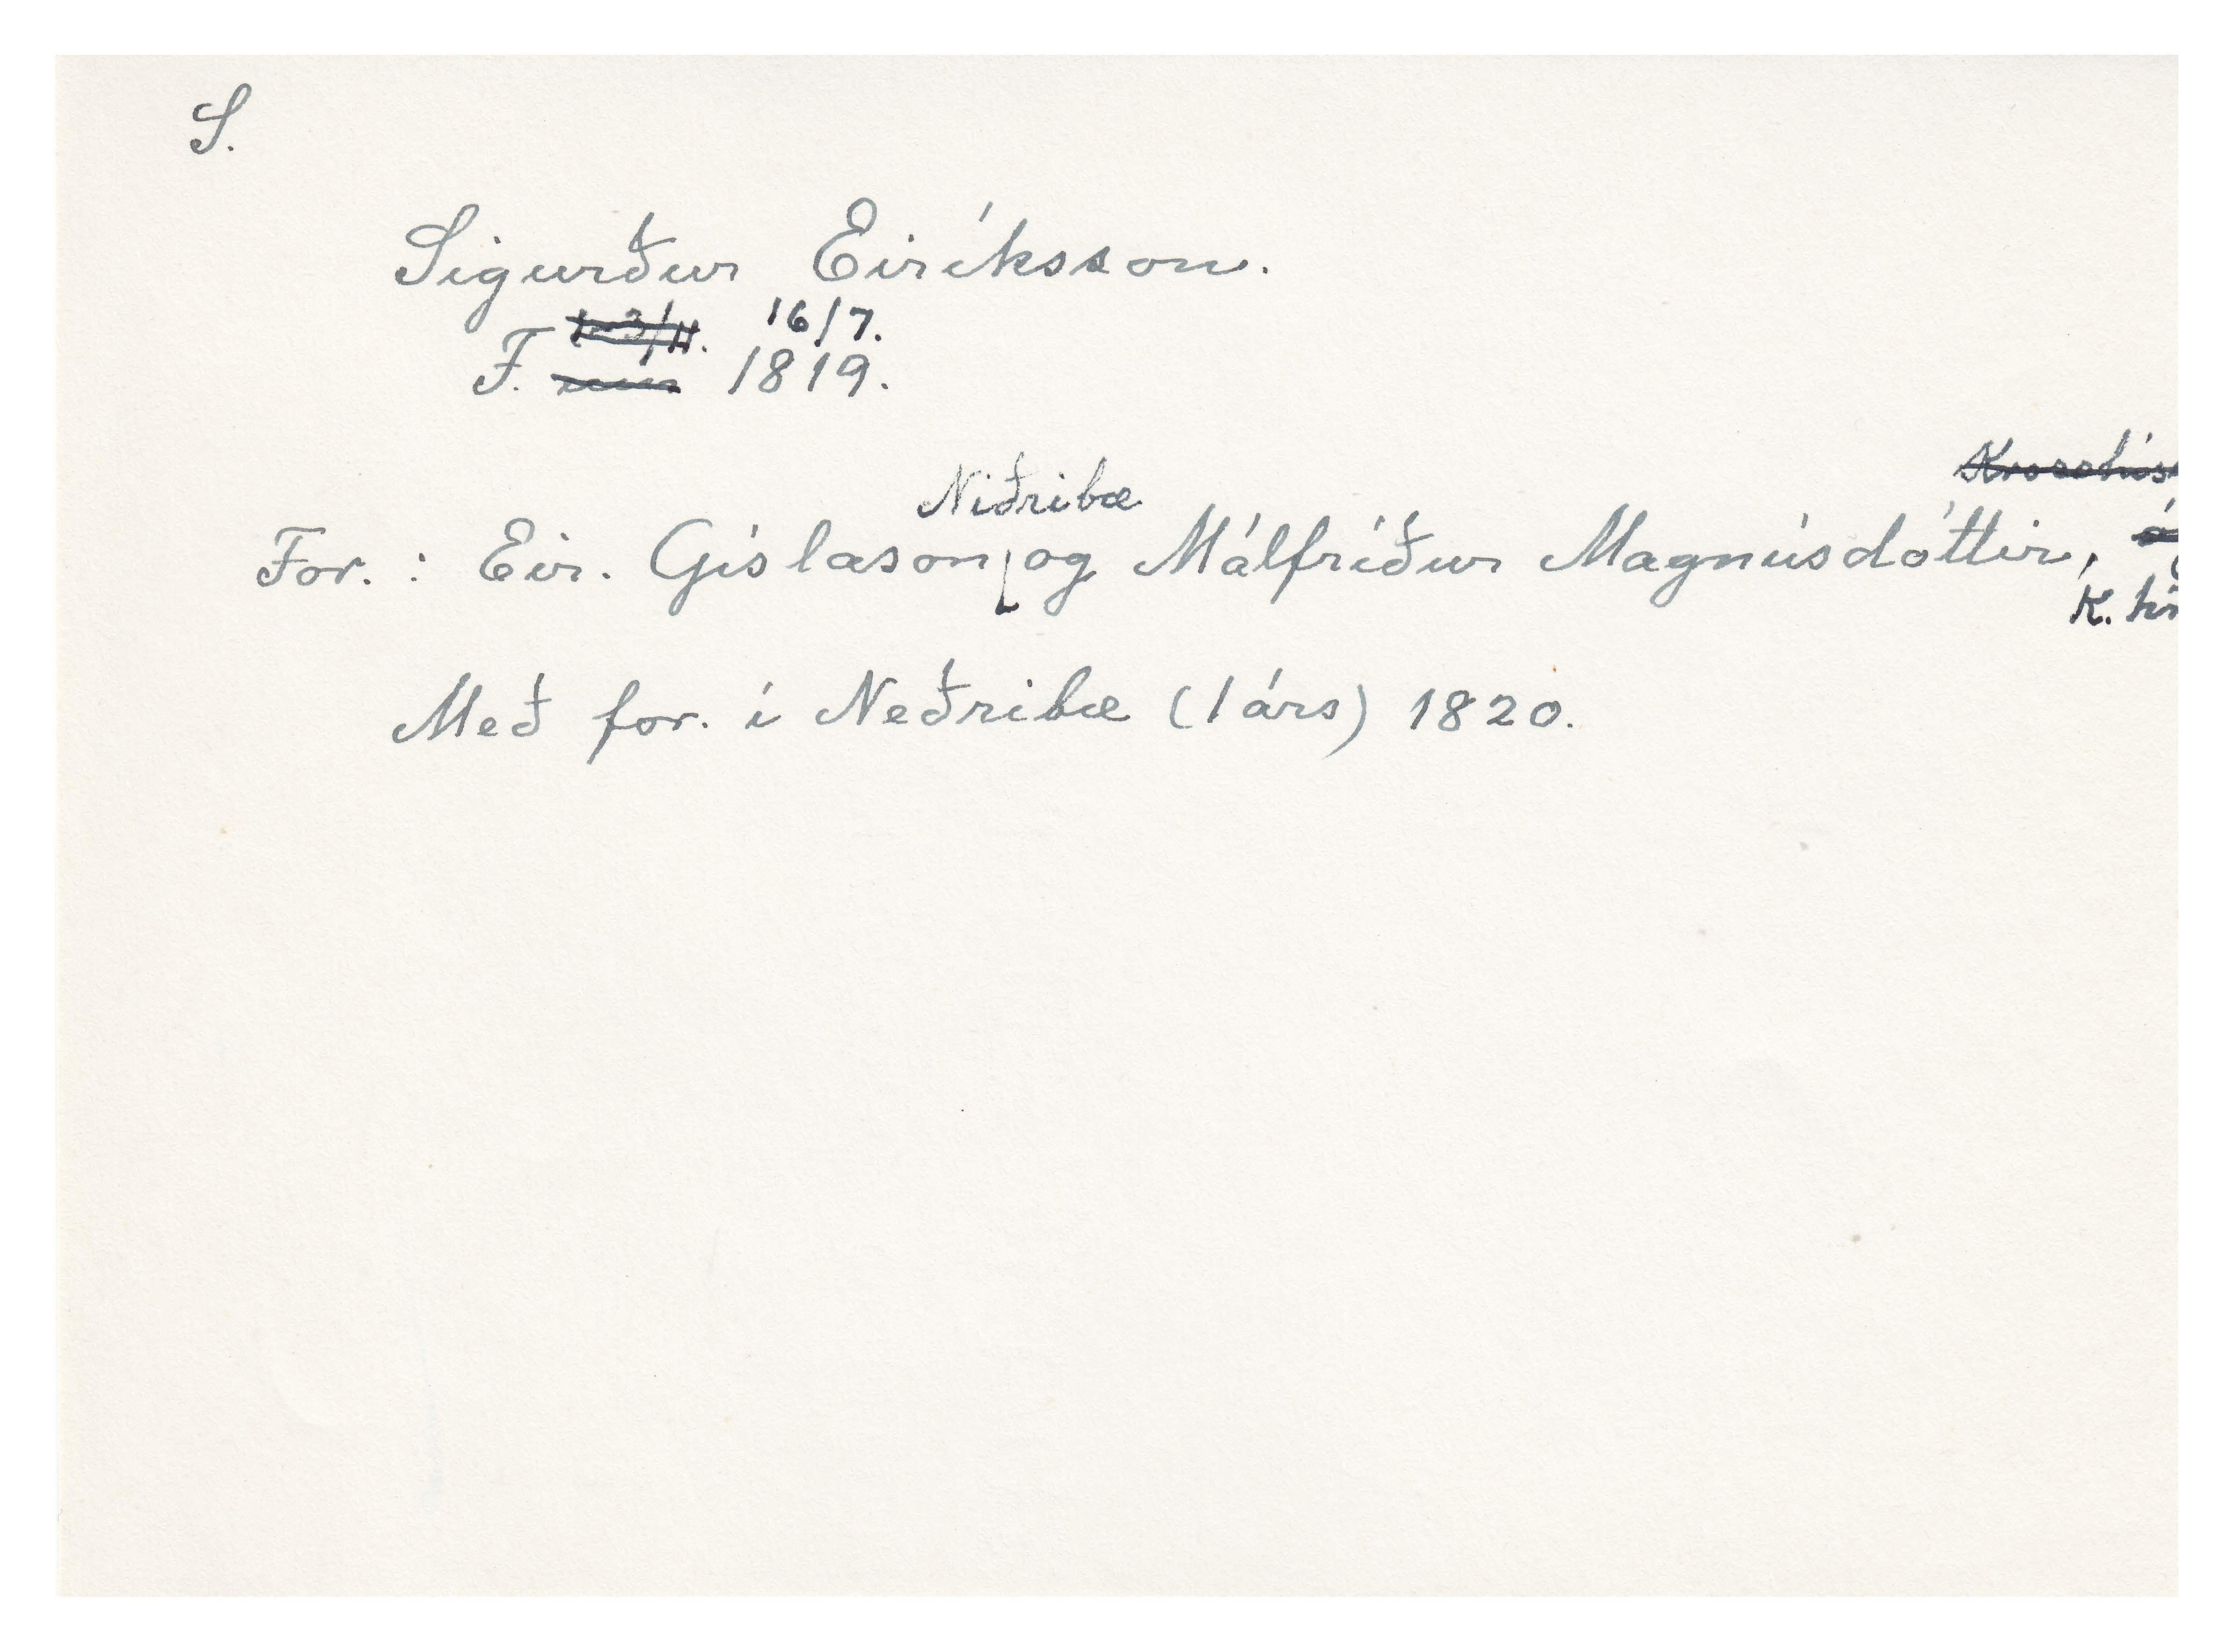 S.
Sigurður Eiríksson.
16/7.
F. 1819.
Niðribæ
For. : Eir. Gíslason og Málfríður Magnúsdóttir,
K.
Með for. í Neðribæ (1 árs) 1820.